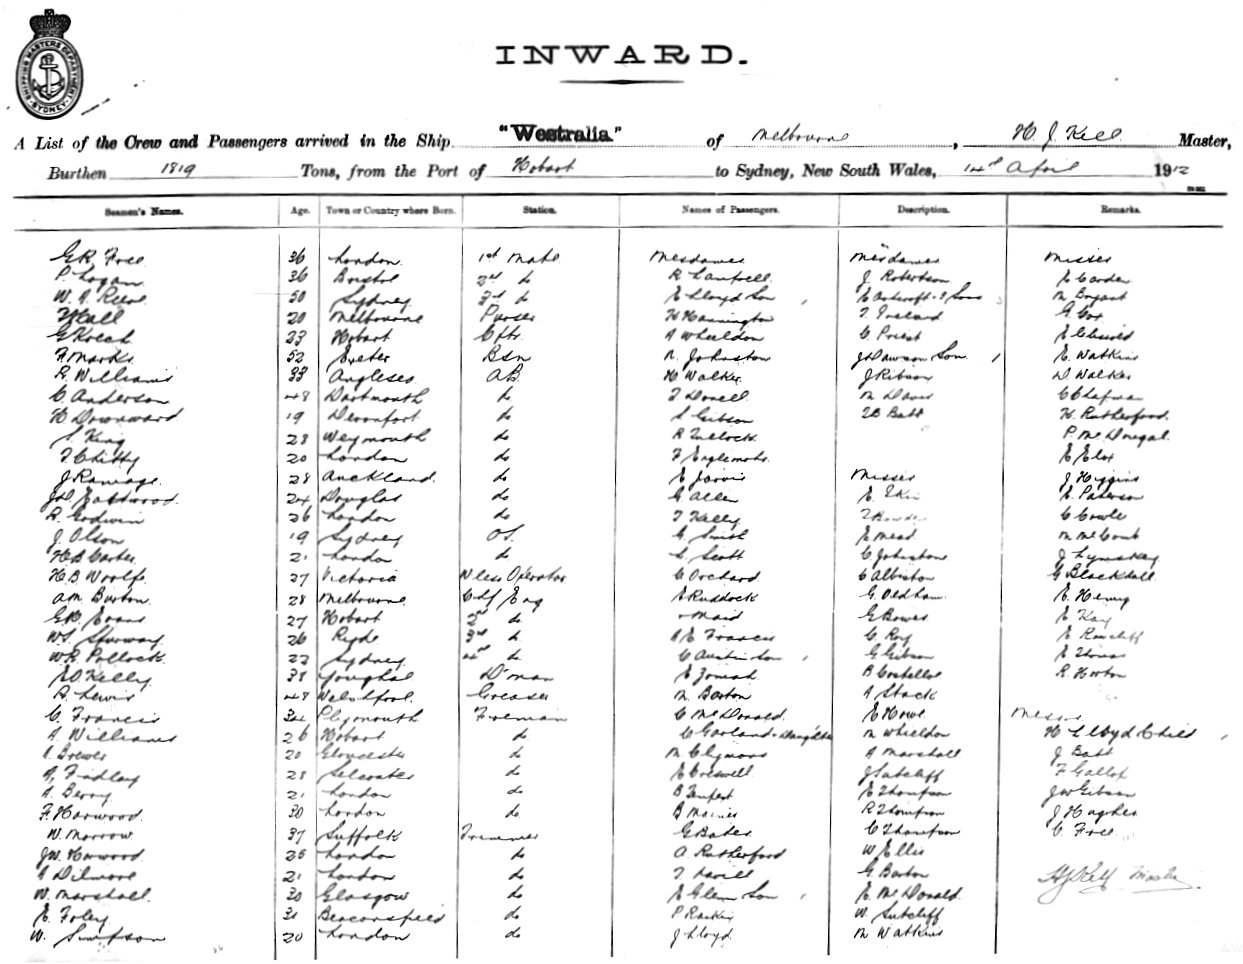 SHIPPING MASTERS DEPARTMENT SYDNEY
INWARD.
A List of the Crew and Passengers arrived in the Ship "Westralia" of Melbourne, H J Kell Master,
Burthen 1819 Tons, from the Port of Hobart to Sydney, New South Wales, April 1912
Seamen's Names. Age. Town or Country where Born. Station. Names of Passengers. Description. Remarks.
36 London 1st Mate Mesdames Mesdames Misses
P. Logan 36 Bristol 2nd do R Campbell J Robertson E Carden
50 Sydney 3rd do E Lloyd Son E Ashcroft & Sons M Bryant
Hall 20 Melbourne Purser H Hannington T Ireland G Cox
23 Hobart A Wheeldon C Priest
F. Marks 52 Exeter Bsn R. Johnston J Dawson Son E. Watkins
R. Williams 33 Anglesea AB H Walker D Walker
C. Anderson 48 Dartmouth do M Davis C Chapman
H Downward 19 Devonport do S Gibson Batt H. Rutherford
S. King 28 Weymouth do R Tullock P. McDougal
T Chitty 20 London do
J Ramage 28 Auckland do E Jarvis Misses J Higgins
Eastwood 24 Douglas do G Allen E. E. Paterson
R. Godwin 26 London do T Kelly C Cowle
J. Olson 19 Sydney OS. G Smith E Mead
H B Carter 21 London do Scott C Johnston
H. B Woolfe 27 Victoria W less Operator C Orchard C Albiston G Blackdall
A M. Burton 28 Melbourne Chf Eng E Ruddock G Oldham E. Henry
Evans 27 Hobart 2nd do " Maid G Bowes E Kay
26 Ryde 3rd do A E Francis C. Roy
W R. Pollock 22 Sydney 4th do G Gibson E Thomas
Kelly 38 Youghal D'man B Costelloe R Horton
R. Lewis 48 Welshpool Greaser M. Barton A Stack
C. Francis 34 Plymouth Fireman C McDonald. E Howe
A Williams 26 Hobart do C Garland & Daughter M Wheeldon H Lloyd Child
A Brewer 20 Gloucester do A Marshall J Batt
A. Findlay 28 do E Creswell J Sutcliff F Gallop
A. Berry 21 London do B Tempest E Thompson J W Gibson
F Harwood 30 London do R Thompson J Hughes
W. Morrow 37 Suffolk Trimmer G Bates C Thompson C
J W. Harwood 25 London do A Rutherford W Ellis
A Dilmore 21 London do G Barton
W. Marshall 30 Glasgow do E Glenn Son E McDonald
E Foley 31 Beaconsfield do P Rankin W. Sutcliff
W. Simpson 20 London do J Lloyd M Watkins
H J Kell Master